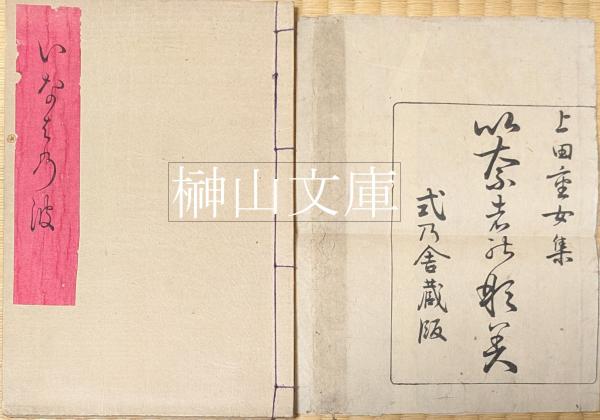 いなは乃波
上田重女集
以奈者能那美
式乃舎蔵版
榊山文庫